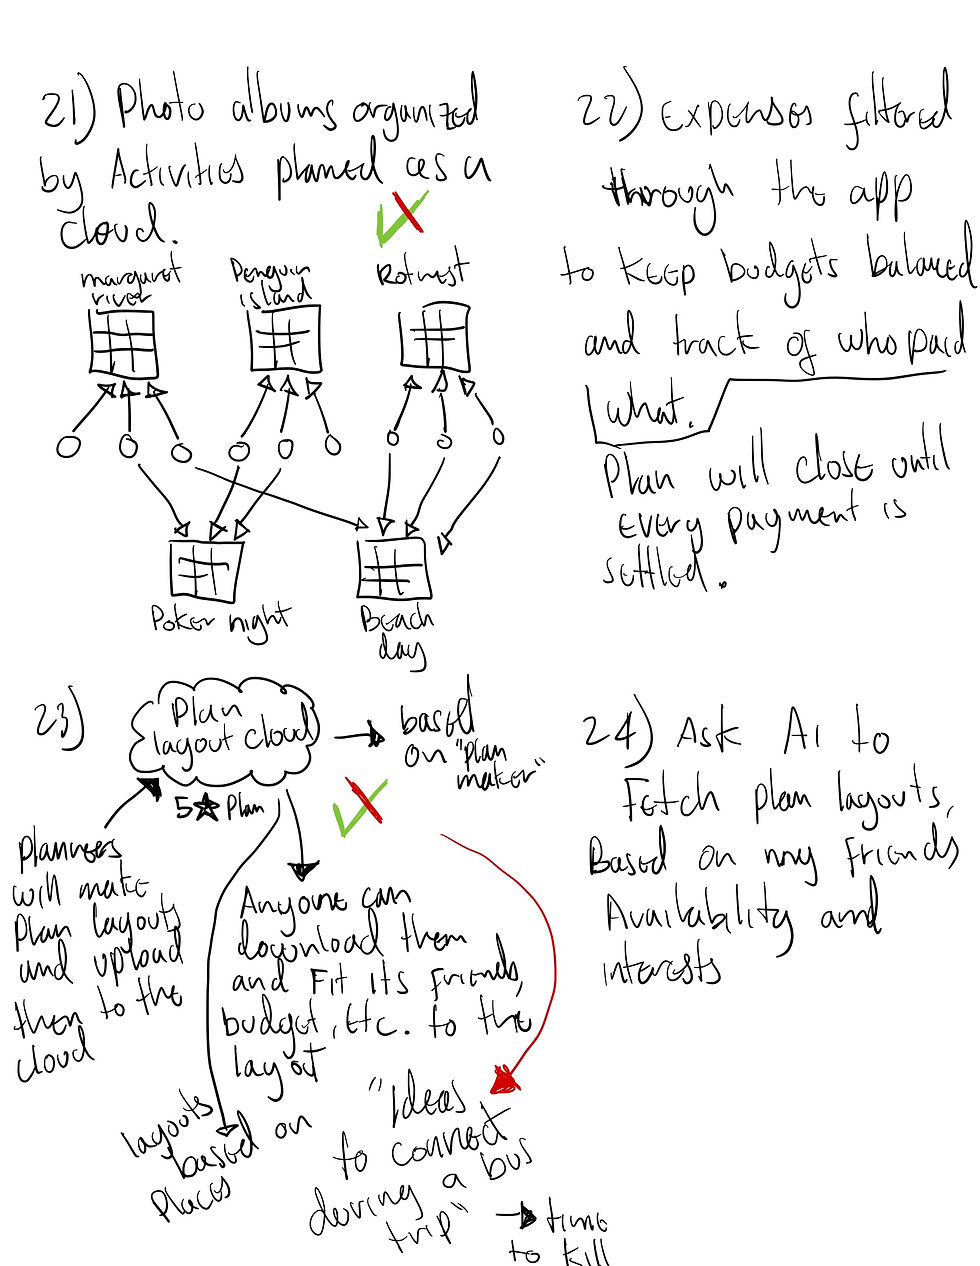 21) Photo albums organized
by Activities planned as a
cloud.
margaret
river
Penguin
island
Rotnest
Poker night
Beach
day
22) Expenses filtered
through the app
to keep budgets balanced
and track of who paid
what.
Plan will close until
every payment is
settled.
23)
Plan
layout cloud
based
on "plan
maker"
5★ Plan
planners
will make
Plan layouts
and upload
then to the
cloud
Anyone can
download them
and Fit its friends,
budget, etc. to the
layout
layouts
based on
Places
"Ideas
to connect
during a bus
trip"
time
to kill
24) Ask AI to
Fetch plan layouts,
Based on my friends
Availability and
interests